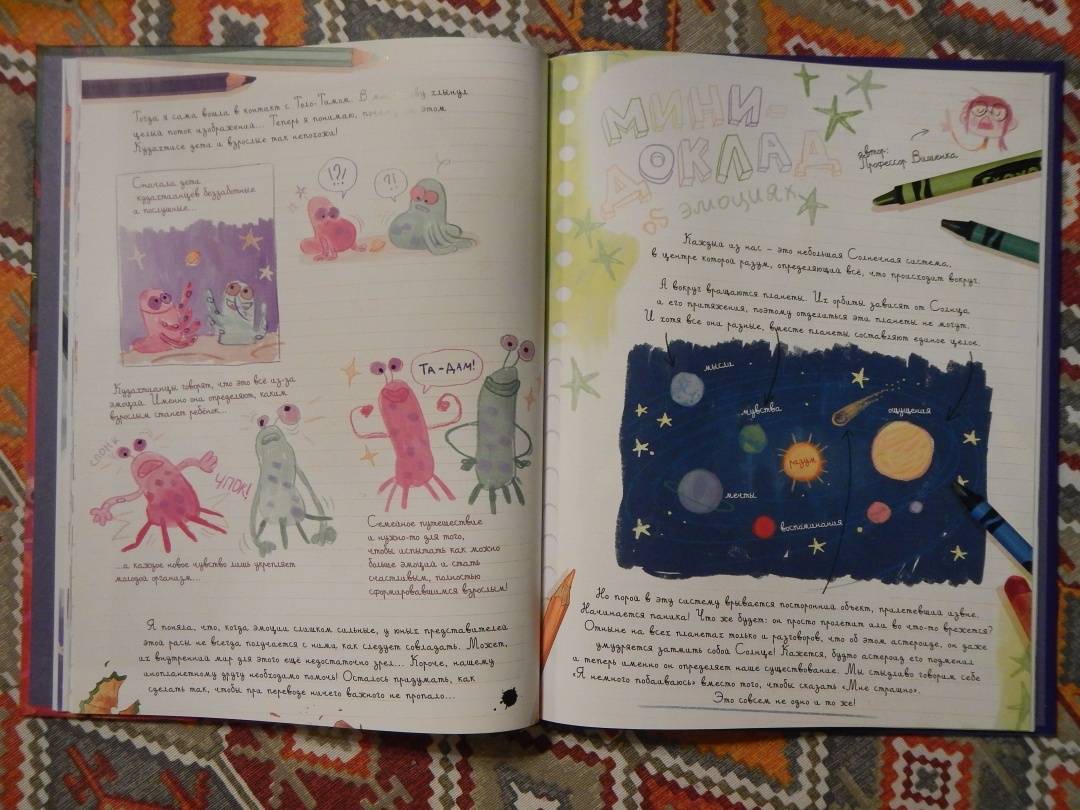 Тогда я сама вошла в контакт с Толо-Тимом. В голову хлынул
целый поток изображений... Теперь я понимаю, почему на этом
Кудахтисе дети и взрослые так непохожи!
Сначала дети
кудахтианцев беззаботные
и послушные...
!?!
?!
Кудахтианцы говорят, что это всё из-за
эмоций. Именно они определяют, каким
взрослым станет ребёнок...
ЧПОК!
...а каждое новое чувство лишь укрепляет
молодой организм...
ТА-ДАМ!
Семейное путешествие
и нужно-то для того,
чтобы испытать как можно
больше эмоций и стать
счастливым, полностью
сформировавшимся взрослым!
Я поняла, что, когда эмоции слишком сильные, у юных представителей
этой расы не всегда получается с ними как следует совладать. Может,
их внутренний мир для этого ещё недостаточно зрел... Короче, нашему
инопланетному другу необходимо помочь! Осталось придумать, как
сделать так, чтобы при переводе ничего важного не пропало...
МИНИ-
ДОКЛАД
об эмоциях
автор:
Профессор Вишенка
Каждый из нас – это небольшая Солнечная система,
в центре которой разум, определяющий всё, что происходит вокруг.
А вокруг вращаются планеты. Их орбиты зависят от Солнца
и его притяжения, поэтому отделиться эти планеты не могут.
И хотя все они разные, вместе планеты составляют единое целое.
мысли
чувства
ощущения
разум
мечты
воспоминания
Но порой в эту систему врывается посторонний объект, прилетевший извне.
Начинается паника! Что же будет: он просто пролетит или во что-то врежется?
Отныне на всех планетах только и разговоров, что об этом астероиде, он даже
умудряется затмить собой Солнце! Кажется, будто астероид его подменил
и теперь именно он определяет наше существование. Мы стыдливо говорим себе
«Я немного побаиваюсь» вместо того, чтобы сказать «Мне страшно».
Это совсем не одно и то же!